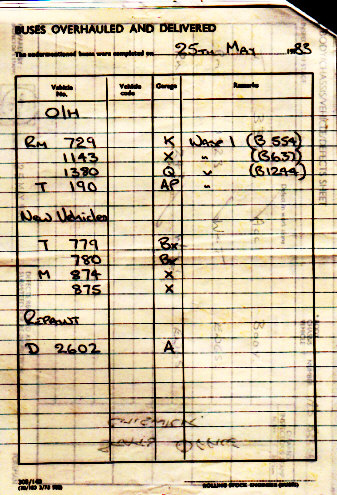 BUSES OVERHAULED AND DELIVERED
The undermentioned buses were completed on 25TH MAY 1983
Vehicle No. Vehicle code Garage Remarks
O/H
RM 729 K WADE 1 (B554)
1143 X " (B637)
1380 Q " (B1244)
T 190 AP "
New Vehicles
T 779 BX
780 BX
M 874 X
875 X
REPAINT
D 2602 A
CHISWICK
OFFICE